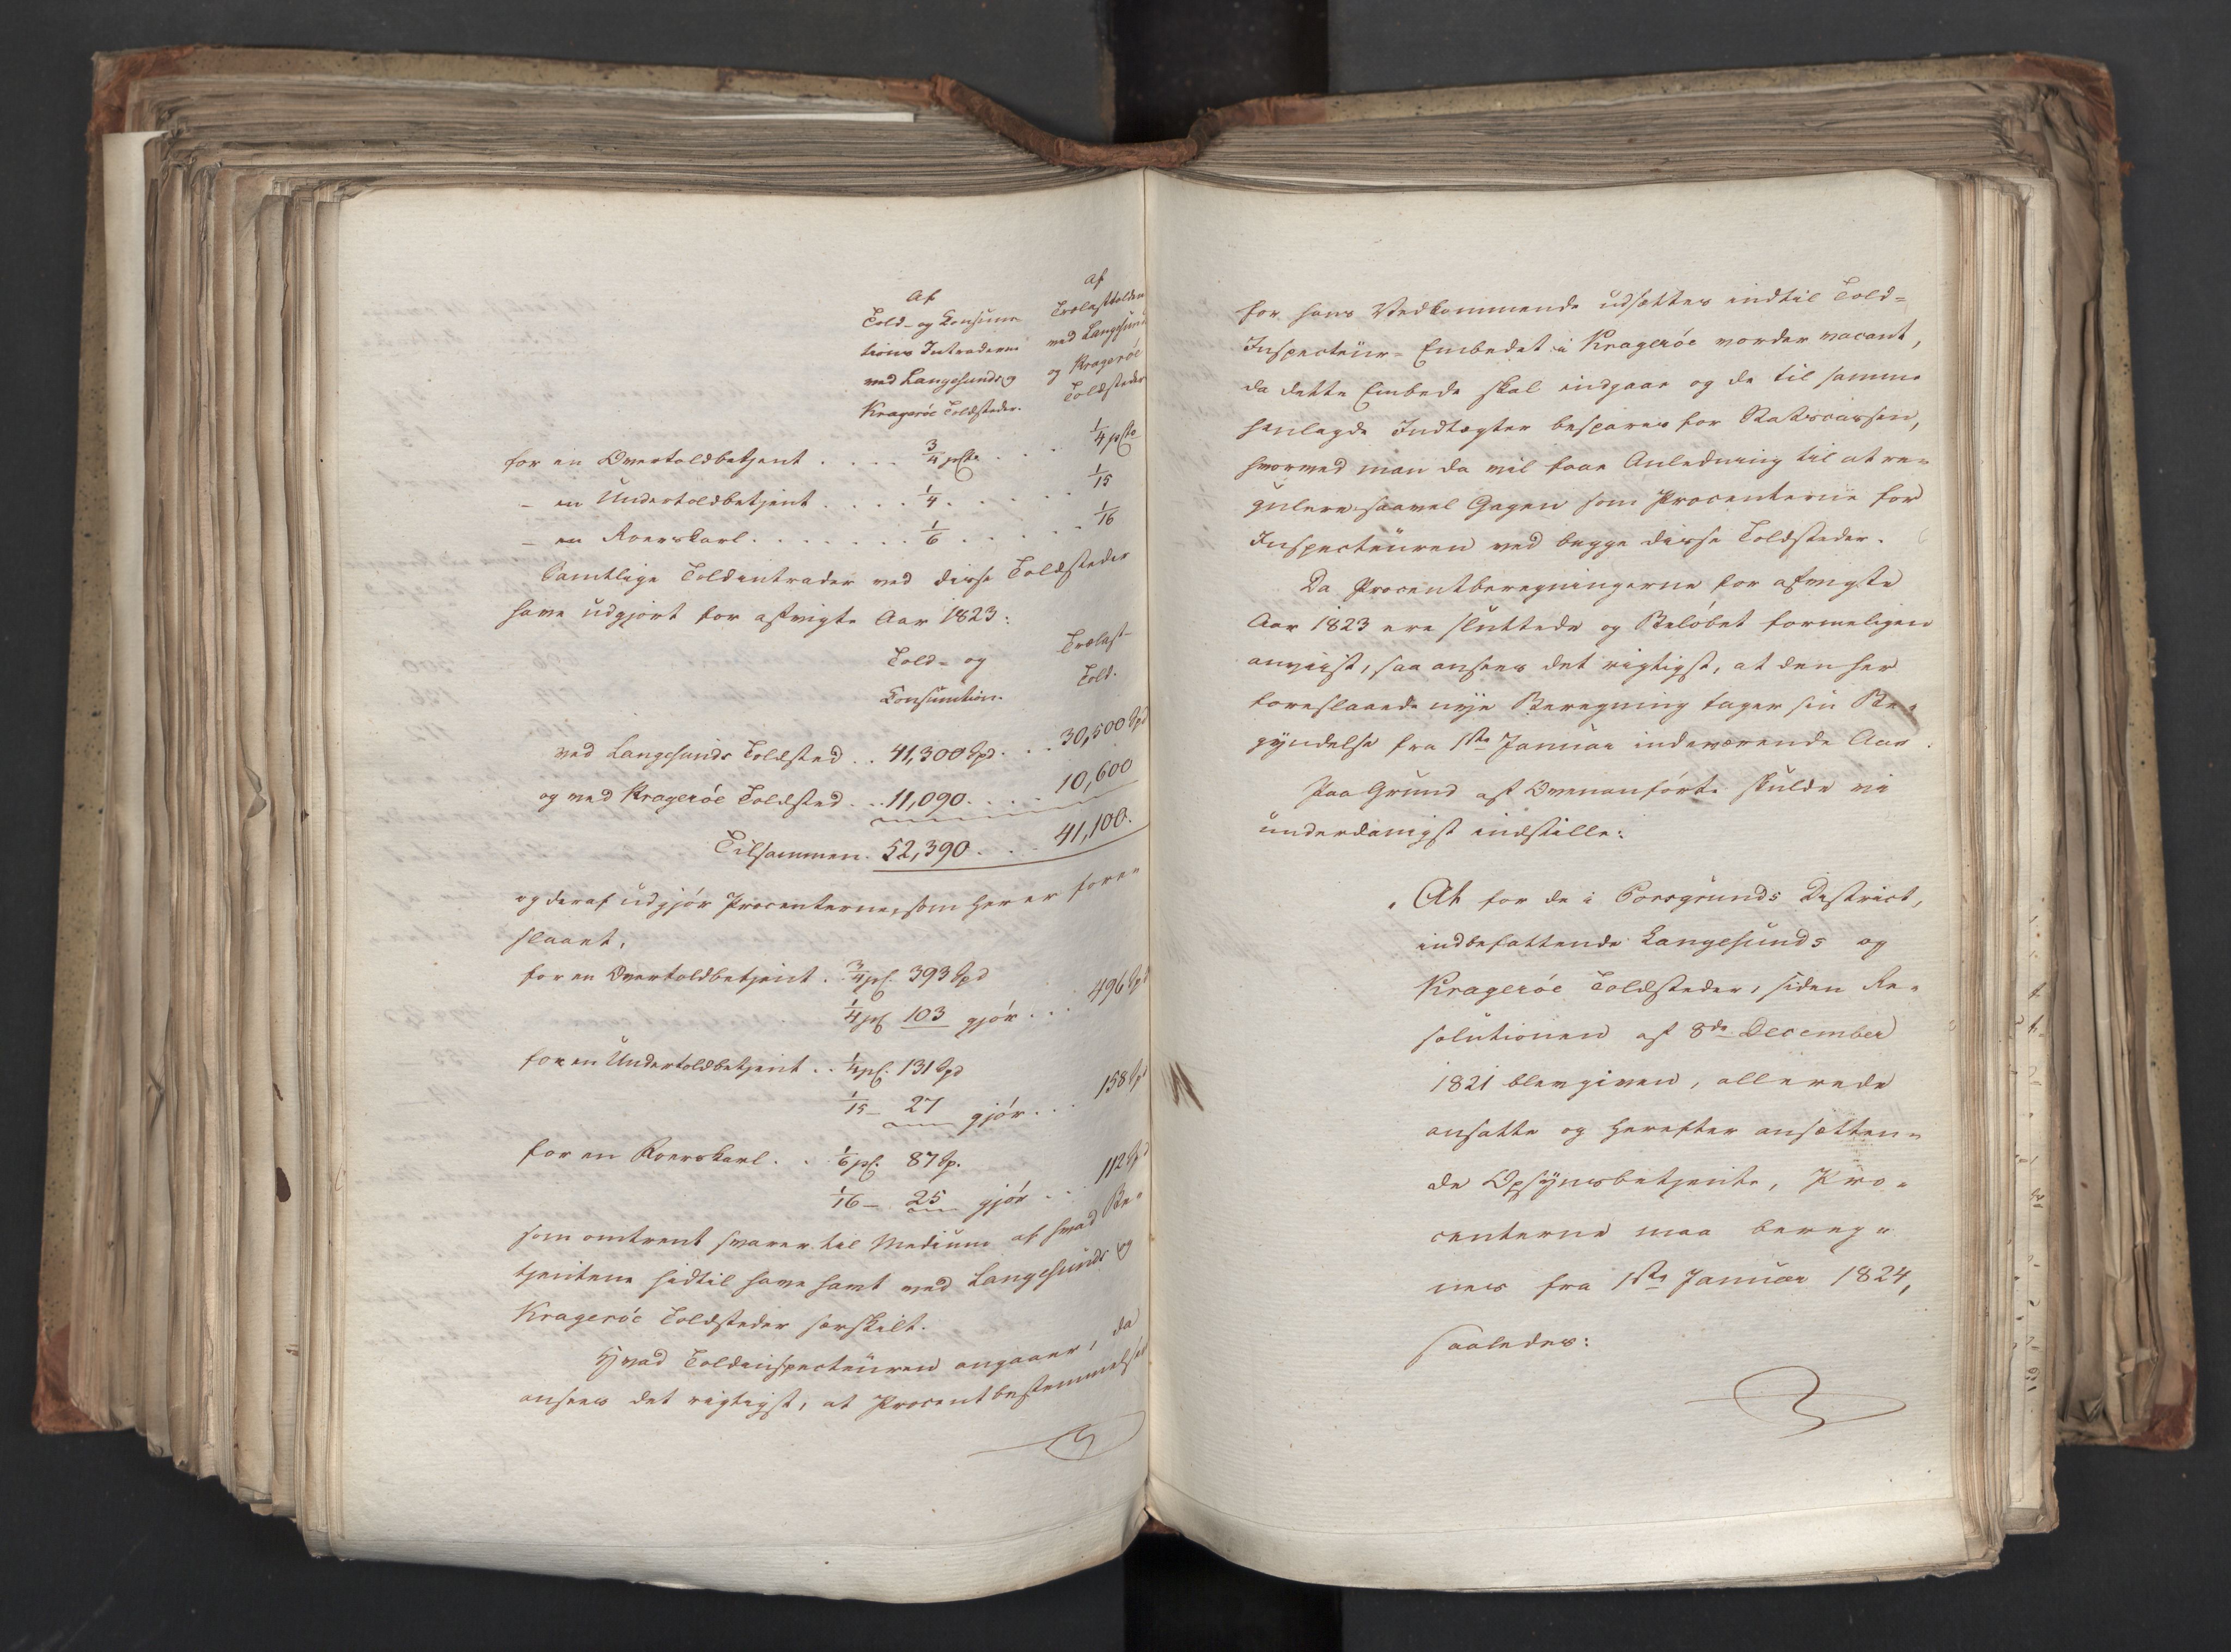 Af
Told- og Consum-
tions Intraderne
ved Langesunds og
Kragerøe Toldsteder.
Af
Trælasttolden
ved Langesund
og Kragerøe
Toldsteder
for en Overtoldbetjent . . . . 3/4 pCto . . . . 1/4 pCto
- en Undertoldbetjent . . . . 1/4 . . . . . 1/15
- en Roerskarl . . . . . . . 1/6 . . . . . 1/16
Samtlige Toldintrader ved disse Toldsteder
have udgjort for afvigte Aar 1823:
Told- og
Consumtion.
Trælast-
Told.
ved Langesunds Toldsted . . 41,300 Spd. . . 30,500 Spd
og ved Kragerøe Toldsted . . 11,090. . . . 10,600
Tilsammen. 52,390 . . . 41,100.
og deraf udgjør Procenterne, som her er fore-
slaaet,
for en Overtoldbetjent . 3/4 pC. 393 Spd
1/4 pC 103 gjør . . . 496 Spd
for en Undertoldbetjent . . 1/4 pC. 131 Spd
1/15 - 27 gjør . . . 158 Spd
for en Roerskarl . . 1/6 pC. 87 Sp.
1/16 - 25 gjør . . 112 Spd
som omtrent svarer til Medium af hvad Be-
tjentene hidtil have havt ved Langesunds og
Kragerøe Toldsteder særskilt.
Hvad Toldinspecteuren angaaer, da
ansees det rigtigst, at Procentbestemmelsen
for hans Vedkommende udsættes indtil Told-
Inspecteur-Embedet i Kragerøe vorder vacant,
da dette Embede skal indgaae og de til samme
henlagde Indtægter bespares for Statscassen,
hvorved man da vil faae Anledning til at re-
gulere saavel Gagen som Procenterne for
Inspecteuren ved begge disse Toldsteder.
Da Procentberegningerne for afvigte
Aar 1823 ere sluttede og Beløbet formeligen
anviist, saa ansees det rigtigst, at den her
foreslaaede nye Beregning tager sin Be-
gyndelse fra 1ste Januar indeværende Aar.
Paa Grund af Ovenanførte skulde vi
underdanigst indstille:
"At for de i Porsgrunds District,
indbefattende Langesunds og
Kragerøe Toldsteder, siden Re-
solutionen af 8de December
1821 blev given, allerede
ansatte og herefter ansætten-
de Opsynsbetjente, Pro-
centerne maa bereg-
nes fra 1ste Januar 1824,
saaledes: